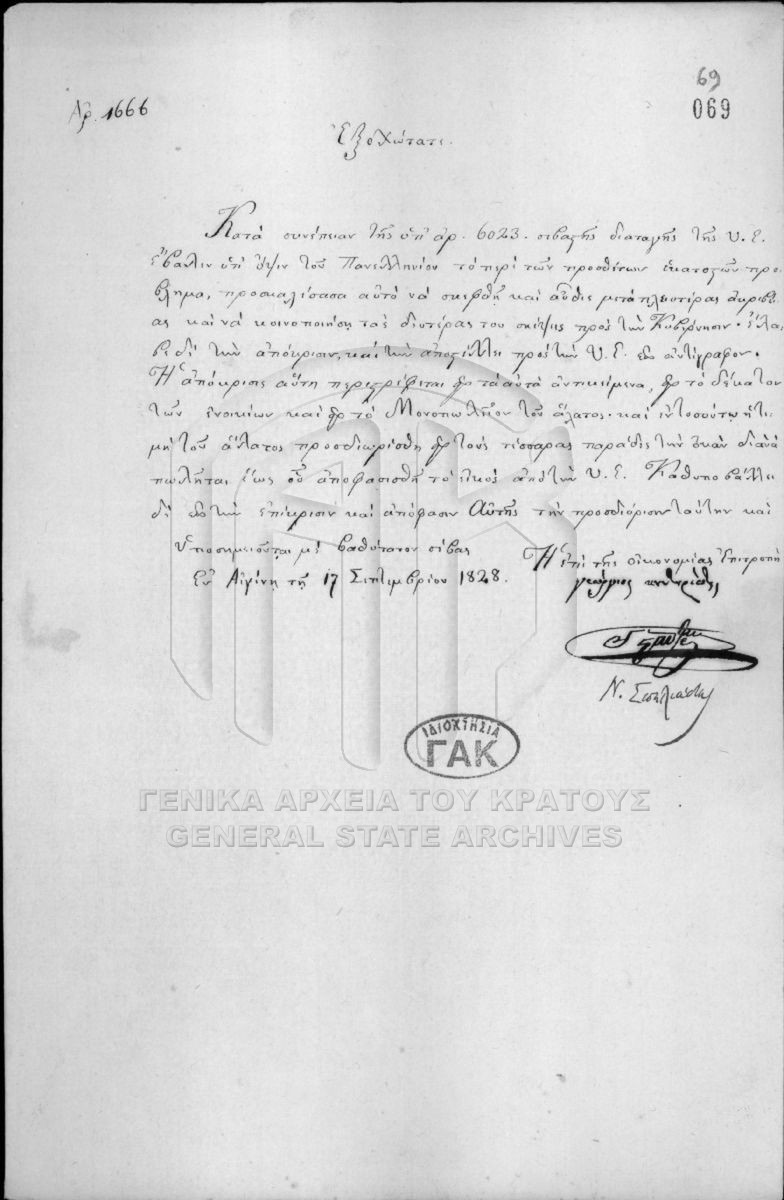 69
Ἀρ. 1666
069
Ἐξοχώτατε.
Κατὰ συνέπειαν τῆς ὑπ' ἀρ. 6023. σεβαστῆς διαταγῆς τῆς Υ. Ε.
ἔβαλεν ὑπ' ὄψιν τοῦ Πανελληνίου τὸ περὶ τῶν προσθέτων ἑκατοστῶν πρό
βλημα, προσκαλέσασα αὐτὸ νὰ σκεφθῇ καὶ αὖθις μετὰ πλειοτέρας ἀκριβεί
ας καὶ νὰ κοινοποιήσῃ τὰς δευτέρας του σκέψεις πρὸς τὴν Κυβέρνησιν. ἔλα
βε δὲ τὴν ἀπόκρισιν, καὶ τὴν ἀποστέλλει πρὸς τὴν Υ. Ε. ἐδῶ ἀντίγραφον.
Ἡ ἀπόκρισις αὕτη περιστρέφεται εἰς τὰ αὐτὰ ἀντικείμενα, εἰς τὸ δέκατον
τῶν ἐνοικίων καὶ εἰς τὸ Μονοπωλεῖον τοῦ ἅλατος. καὶ ἐν τοσούτῳ ἡ τι
μὴ τοῦ ἅλατος προσδιωρίσθη εἰς τοὺς τέσσαρας παράδες τὴν ὀκὰν διὰ νὰ
πωλῆται ἕως οὗ ἀποφασισθῇ τὸ εἰκὸς ἀπὸ τὴν Υ. Ε. Καθυποβάλλει
δὲ εἰς τὴν ἐπίκρισιν καὶ ἀπόφασιν Αὐτῆς τὴν προσδιόρισιν ταύτην καὶ
ὑποσημειοῦται μὲ βαθύτατον σέβας
Ἡ ἐπὶ τῆς οἰκονομίας Ἐπιτροπὴ
Ἐν Αἰγίνῃ τῇ 17 Σεπτεμβρίου 1828.
γεώργιος
Ν.
ΙΔΙΟΚΤΗΣΙΑ
ΓΑΚ
ΓΕΝΙΚΑ ΑΡΧΕΙΑ ΤΟΥ ΚΡΑΤΟΥΣ
GENERAL STATE ARCHIVES